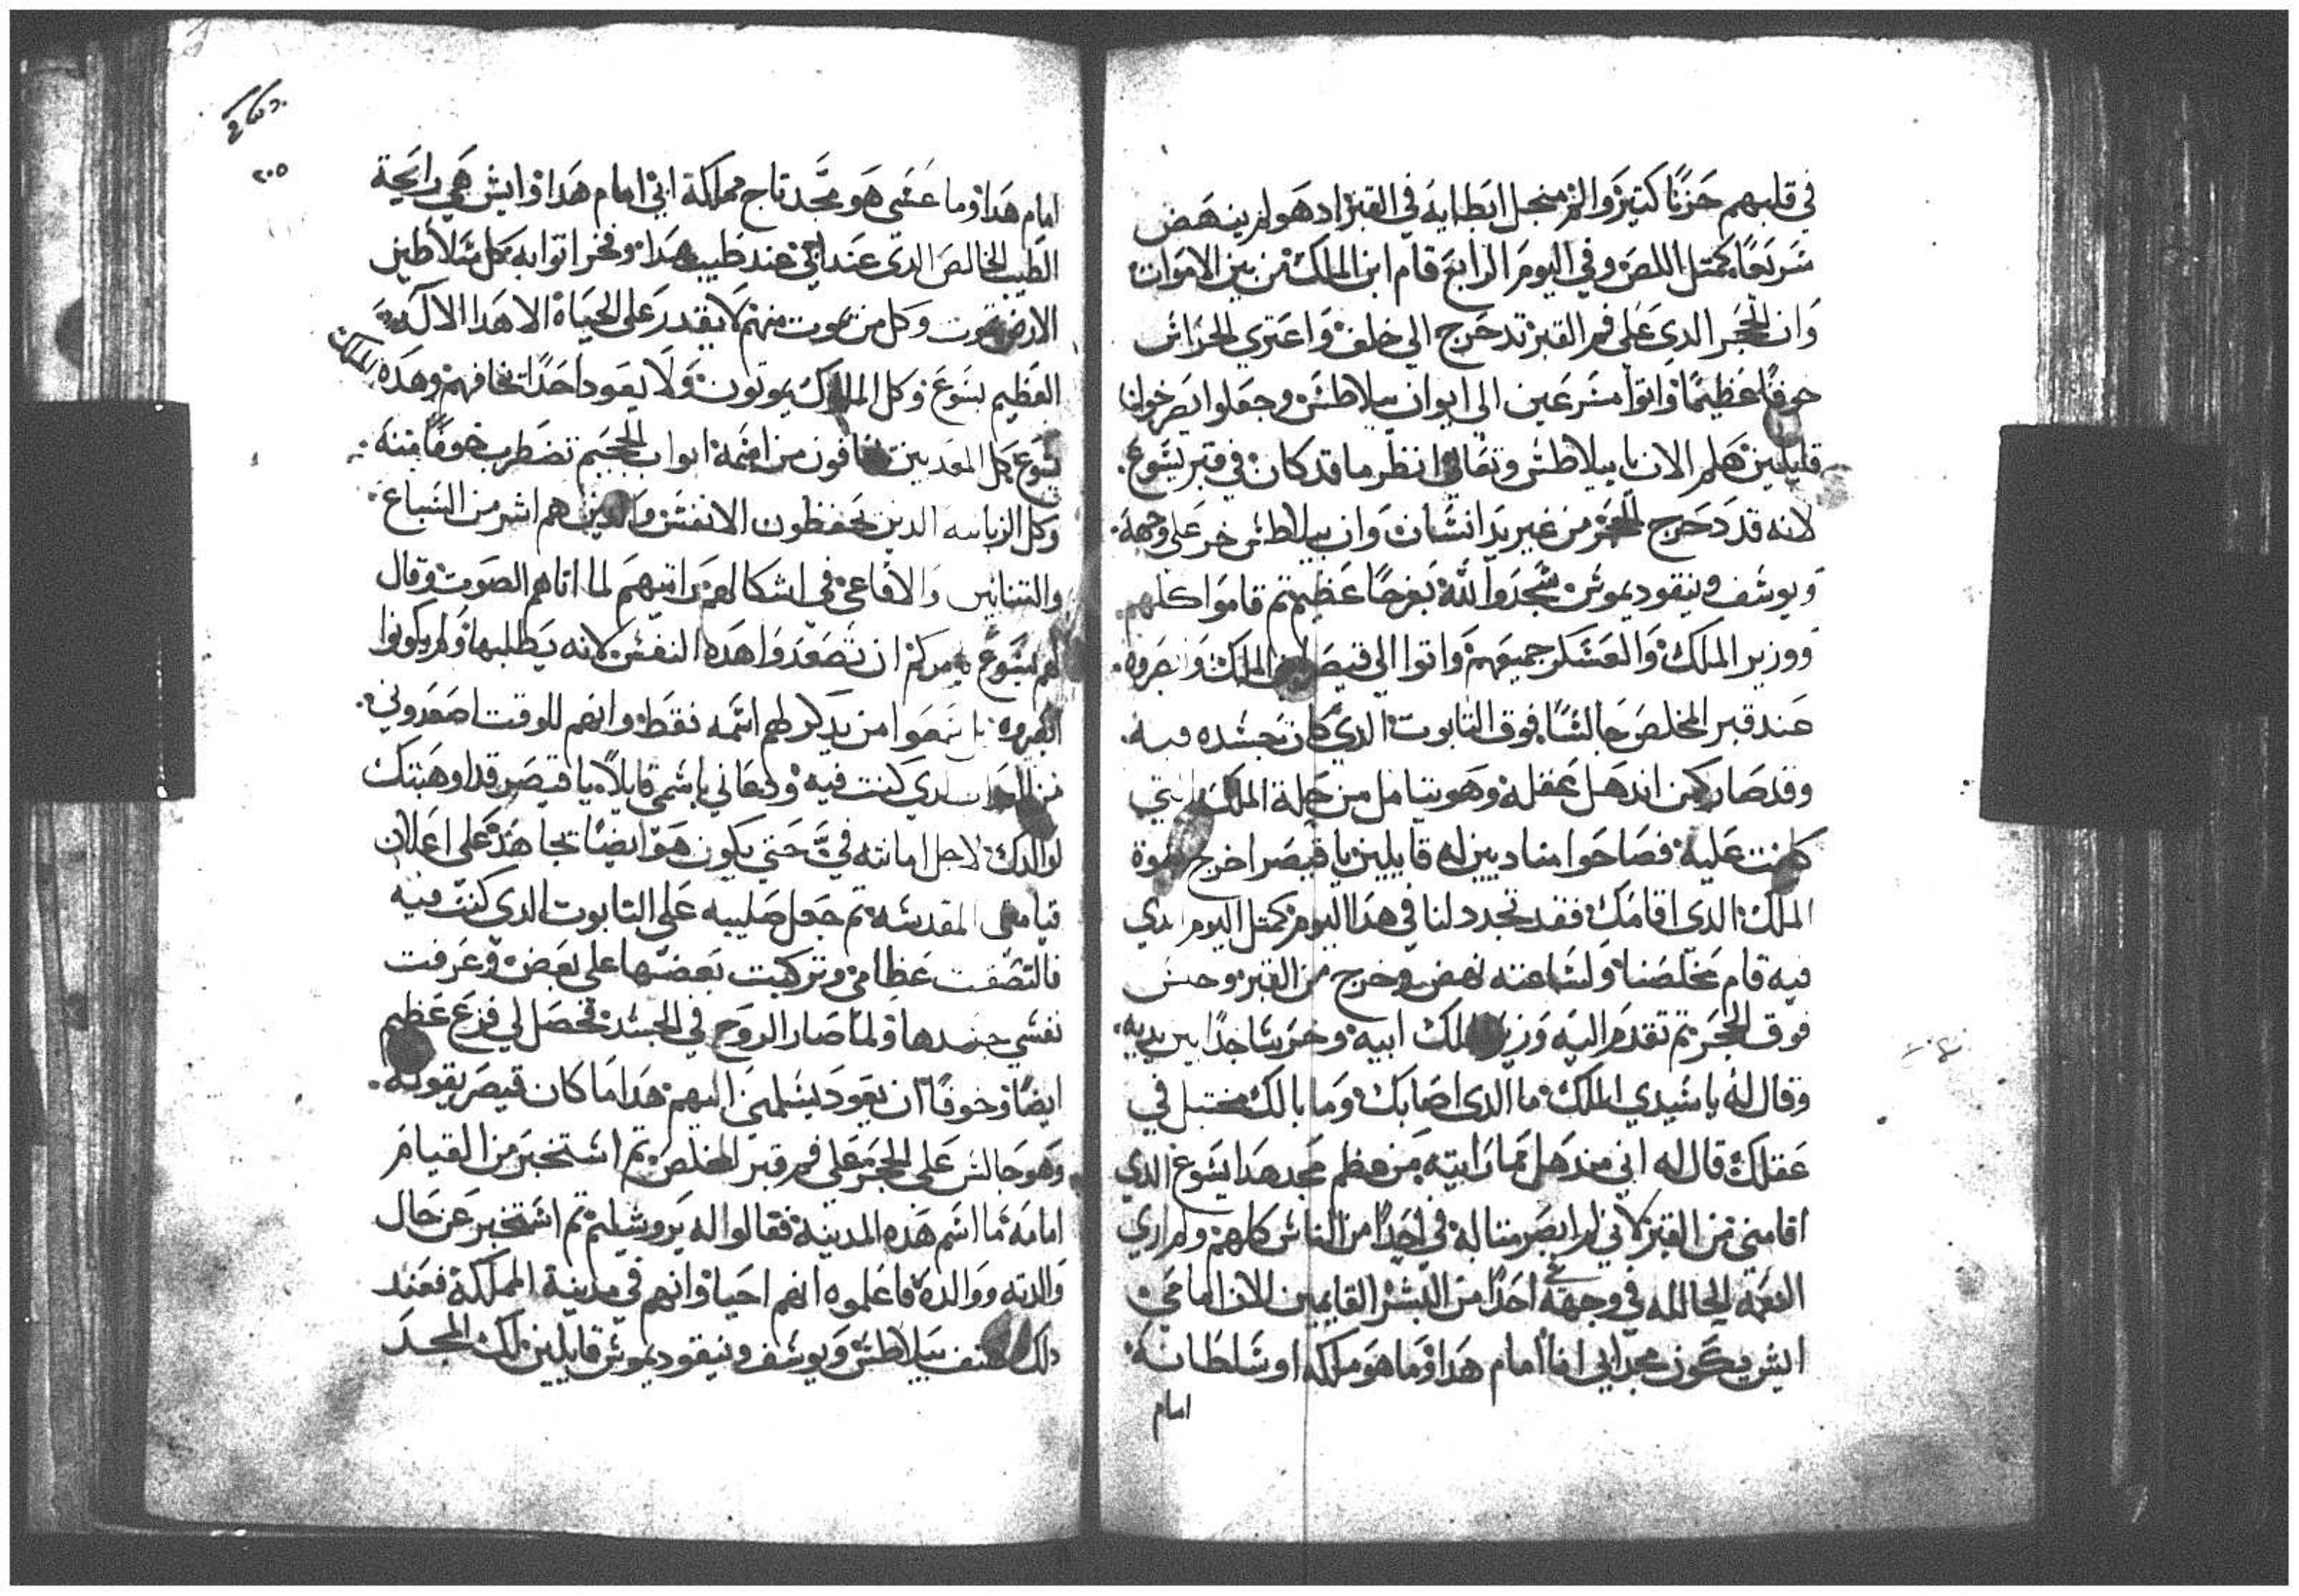 في قلبهم حزنًا كتير والم منجل ابطايه في القبر اد هو لم ينهض
سريعًا كمتل اللص وفي اليوم الرابع قام ابن الملك من بين الاموات
وان الحجر الدي على فم القبر تدحرج الى خلف واعتري الحراس
خوفًا عظيمًا واتوا مسرعين الي ايوان بيلاطس وجعلوا يصرخوا
قايلين هلم الان يا بيلاطس وتعالي انظر ما قد كان في قبر يسوع
لانه قد دحرج الحجر من غير يد انسان وان بيلاطس خر على وجهه
ويوسف ونيقوديموس سجدوا لله بفرحًا عظيم تم قاموا كلهم
ووزير الملك والعسكر جميعهم واتوا الي قيصر الملك وابصروه
عند قبر المخلص جالسًا فوق التابوت الدي كان جسده فيه
وقد صار كمن اندهل بعقله وهو يتامل من حلة الملك التي
كانت عليه فصاحوا منادين له قايلين يا قيصر اخرج بقوة
الملك الدي اقامك فقد تجدد لنا في هدا اليوم كمتل اليوم الدي
فيه قام مخلصنا ولساعته نهض وخرج من القبر وجلس
فوق الحجر تم تقدم اليه وزير ملك ابيه وخر ساجدًا بين يديه
وقال له يا سيدي الملك ما الدى اصابك وما بالك مختبل في
عقلك قال له اني مندهل مما رايته من عظم مجد هدا يسوع الدي
اقامني من القبر لاني لم ابصر متاله في احدًا من الناس كلهم ولم اري
النعمه الحالله في وجهه احدًا من البشر القايمين الان امامي
ايش يكون مجد ابي انا امام هدا وما هو ملكه او سلطانه
امام
٢٠٥
امام هدا وما عسى هو مجد تاج مملكة ابي امام هدا وايش هي رايحة
الطيب الخالص الدي عند ابي عند طيب هدا وفخر اتوابه كل سلاطين
الارض تموت وكل من يموت منهم لا يقدر على الحياة الا هدا الاله
العظيم يسوع وكل الملوك يموتون ولا يعود احدًا يخافهم وهده الملك
يسوع كل المعدبين يخافون من اسمه ابواب الجحيم تضطرب خوفًا منه
وكل الزبانيه الدين يحفظون الانفس والدين هم اشر من السباع
والتنانين والافاعي في اشكالهم راتبهم لما اتاهم الصوت وقال
لهم يسوع يامركم ان تصعدوا هده النفس لانه يطلبها ولم يكونوا
ابصروه بل سمعوا من يدكر لهم اسمه فقط وانهم للوقت اصعدوني
من الدي كنت فيه ودعاني باسمي قايلاً يا قيصر قد اوهبتك
لوالدك لاجل امانته فيَّ حتى يكون هو ايضًا يجاهد على اعلان
قيامتي المقدسه تم جعل صليبه على التابوت الدي كنت فيه
فالتصقت عظامي وتركبت بعضها على بعض وعرفت
نفسي جسدها ولما صار الروح في الجسد فحصل لي فزع عظيم
ايضًا وخوفًا ان يعود يسلمني اليهم هدا ما كان قيصر يقوله
وهو جالس على الحجر على فم قبر المخلص تم استخبر من القيام
امامه ما اسم هده المدينة فقالوا له يروشيليم تم استخبر عن حال
والدته ووالده فاعلموه انهم احيا وانهم في مدينة المملكة فعند
دلك هتف بيلاطس ويوسف ونيقوديموس قايلين لك المجد